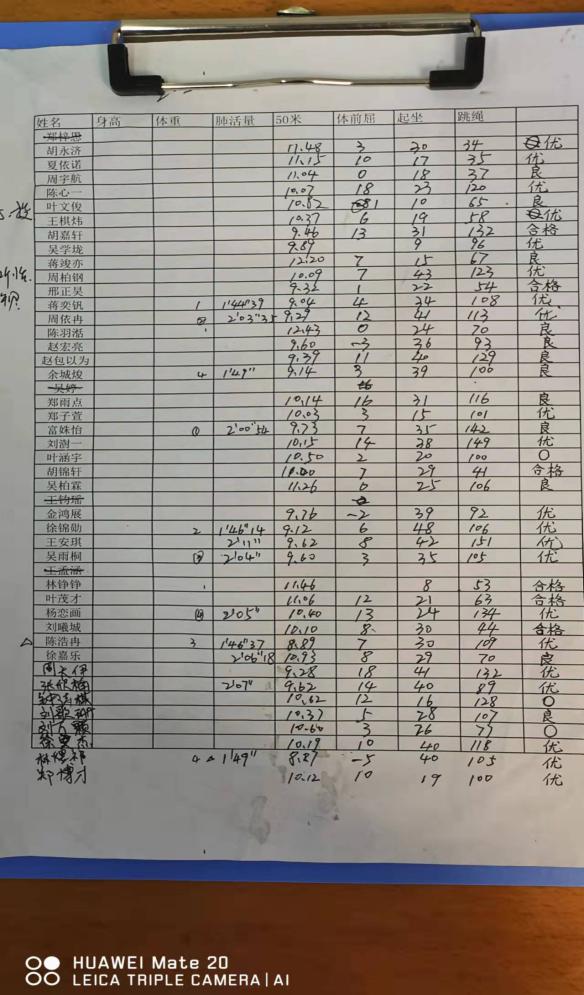 姓名 身高 体重 肺活量 50米 体前屈 起坐 跳绳
郑梓恩
胡永济 11.48 3 30 34 优
夏依诺 11.15 10 17 35 优
周宇航 11.04 0 18 37 良
陈心一 10.07 18 23 120 优
叶文俊 10.82 81 10 65 良
王棋炜 10.37 6 19 58 优
胡嘉轩 9.46 13 31 132 合格
吴学垅 9.89 9 96 优
蒋竣亦 12.20 7 15 67 良
周柏钢 10.09 7 43 123 优
邢正昊 9.32 1 22 54 合格
蒋奕钒 1 1'44"39 9.04 4 34 108 优
周依冉 ② 2'03"35 9.29 12 41 113 优
陈羽湉 12.43 0 24 70 良
赵宏亮 9.60 -3 36 93 良
赵包以为 9.39 11 40 129 良
余城焌 4 1'49" 9.14 3 39 100 良
吴婷
郑雨点 10.14 16 31 116 良
郑子萱 10.03 3 15 101 优
富姝怡 ① 2'00"54 9.73 7 35 142 良
刘澍一 10.15 14 38 149 优
叶涵宇 10.50 2 20 100 O
胡锦轩 7 29 41 合格
吴柏霖 11.26 0 25 106 良
王钧瑶
金鸿展 9.76 -2 39 92 优
徐锦勋 2 1'46"14 9.12 6 48 106 优
王安琪 2'11" 9.62 8 42 151 优
吴雨桐 ③ 2'04" 9.60 3 35 105 优
王孟涵
林铮铮 11.46 8 53 合格
叶茂才 11.06 12 21 63 合格
杨恋画 ④ 2'05" 10.40 13 24 134 优
刘曦城 10.10 8 30 44 合格
△ 陈浩冉 3 1'46"37 8.89 7 30 109 优
徐嘉乐 2'06"18 10.93 8 29 70 良
9.28 18 41 132 优
2'07" 9.62 14 40 89 优
10.62 12 16 128 O
10.37 5 28 107 良
10.60 3 26 77 O
10.19 10 40 118 优
4 1'49" 8.87 -5 40 105 优
郑博才 10.12 10 19 100 优
HUAWEI Mate 20
LEICA TRIPLE CAMERA | AI